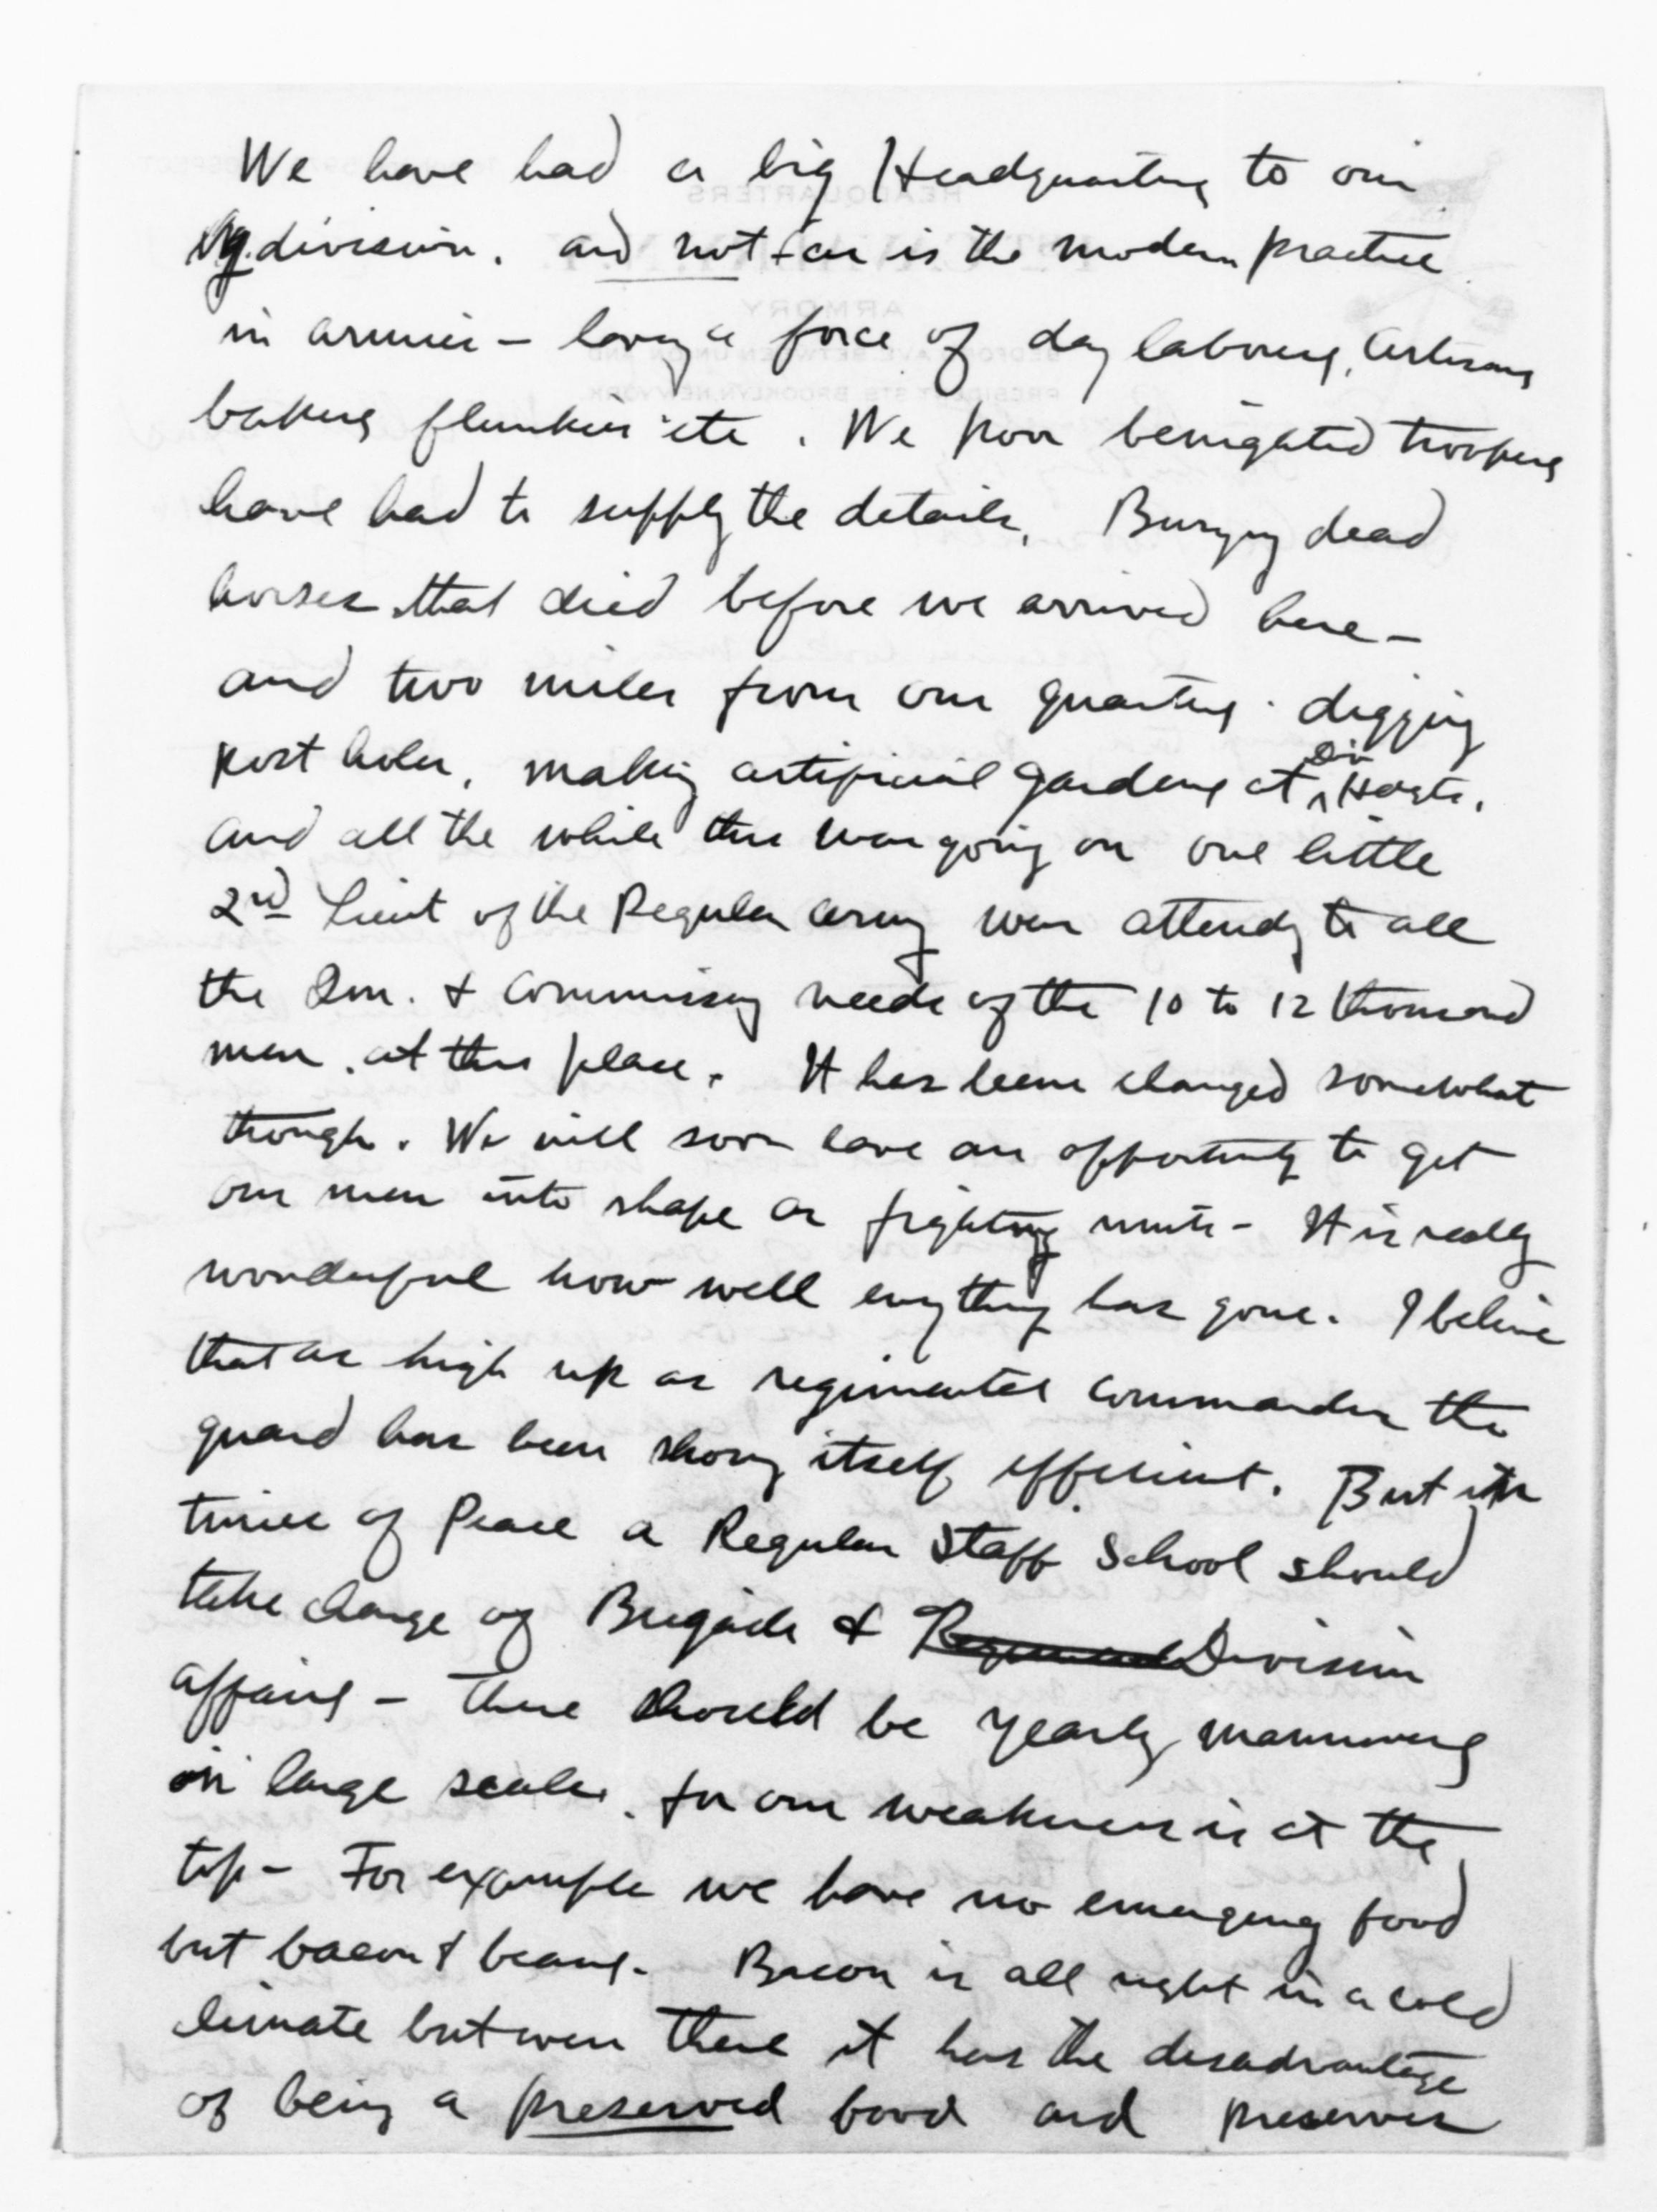 We have had a big Headquarters to our
N.Y. division. and not - as is the modern practice
in armies - having a force of day laborers, artisans
bakers flunkies etc. We poor benighted troopers
have had to supply the details, Burying dead
horses that died before we arrived here -
and two miles from our quarters. digging
post holes, making artificial gardens at Div Hdqts.
and all the while this was going on one little
2nd Lieut of the Regular army was attending to all
the Qm. & Commissary needs of the 10 to 12 thousand
men at this place. It has been changed somewhat
though. We will soon have an opportunity to get
our men into shape as fighting units - It is really
wonderful how well everything has gone. I believe
that as high up as regimental commander the
guard has been showing itself efficient. But in
times of Peace a Regular Staff School should
take charge of Brigade & Regimental Division
affairs - There should be yearly manuvers
on large scale, for our weakness is at the
top - For example we have no emergency food
but bacon & beans. Bacon is all right in a cold
climate but even there it has the disadvantage
of being a preserved food and preserves
HEADQUARTERS
ARMORY